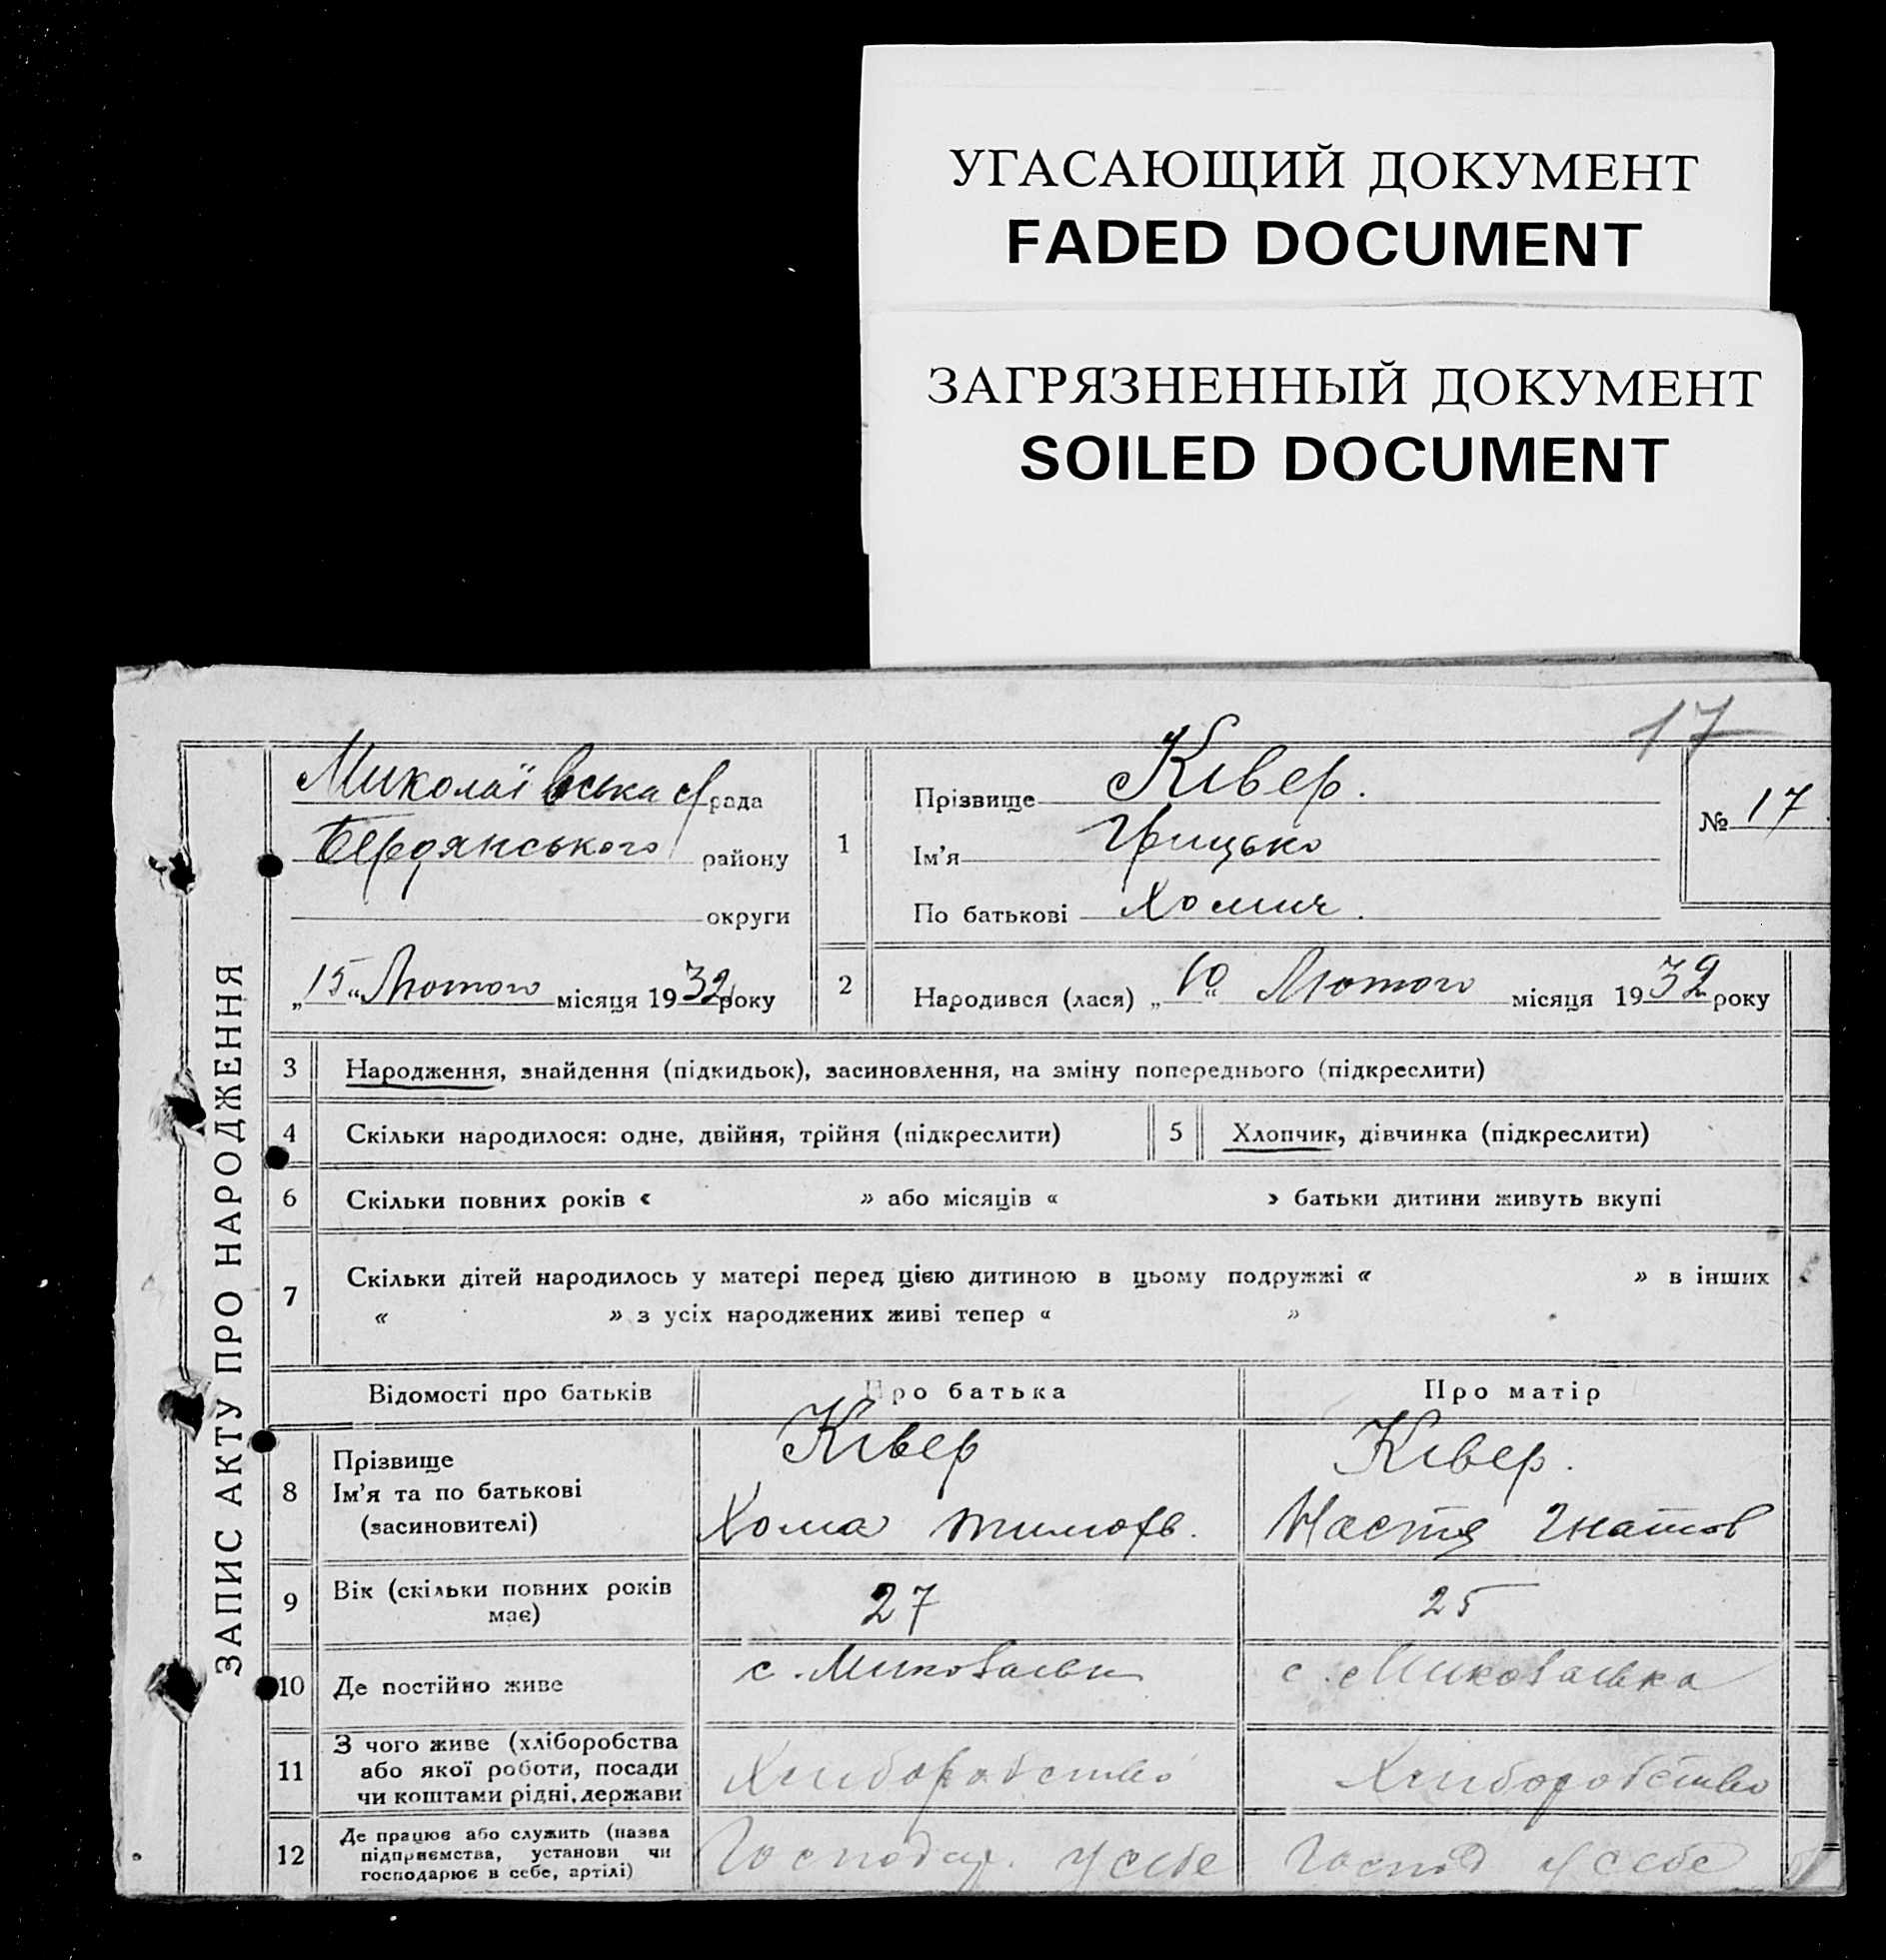 УГАСАЮЩИЙ ДОКУМЕНТ
FADED DOCUMENT
ЗАГРЯЗНЕННЫЙ ДОКУМЕНТ
SOILED DOCUMENT
17
ЗАПИС АКТУ ПРО НАРОДЖЕННЯ
Миколаївська с/рада
Бердянського району
округи
„15“ Лютого місяця 1932 року
1
Прізвище Ківер.
Ім'я Грицько
По батькові Хомич.
№ 17
2
Народився (лася) „10“ Лютого місяця 1932 року
3 Народження, знайдення (підкидьок), засиновлення, на зміну попереднього (підкреслити)
4 Скільки народилося: одне, двійня, трійня (підкреслити) 5 Хлопчик, дівчинка (підкреслити)
6 Скільки повних років « » або місяців « » батьки дитини живуть вкупі
7 Скільки дітей народилось у матері перед цією дитиною в цьому подружжі « » в інших
« » з усіх народжених живі тепер « »
Відомості про батьків Про батька Про матір
8 Прізвище Ківер Ківер.
Ім'я та по батькові Хома Тимофв. Настя Гнатов
(засиновителі)
9 Вік (скільки повних років має) 27 25
10 Де постійно живе с. Миколаівка с. Миколаівка
11 З чого живе (хліборобства
або якої роботи, посади
чи коштами рідні, держави Хліборобство Хліборобство
12 Де працює або служить (назва
підприємства, установи чи
господарює в себе, артілі) Господар. у себе Господ у себе